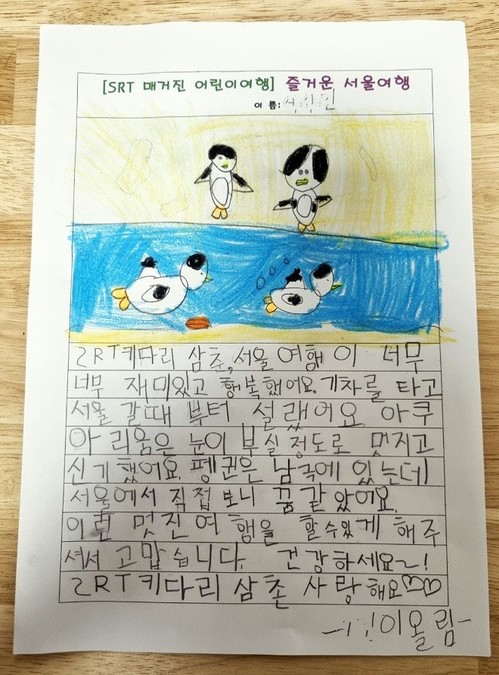 [SRT 매거진 어린이여행] 즐거운 서울여행
이 름:
SRT키다리 삼촌, 서울 여행 이 너무
너무 재미있고 행복했어요. 기차를 타고
서울 갈때 부터 설랬어요. 아쿠
아 리움은 눈이 부실정도로 멋지고
신기했어요. 펭귄은 남극에 있는데
서울에서 직접 보니 꿈같았어요.
이런 멋진여 행을 할수있게 해주
셔서 고맙습니다. 건강하세요~!
SRT키다리 삼촌 사랑해요♡♡
이올림